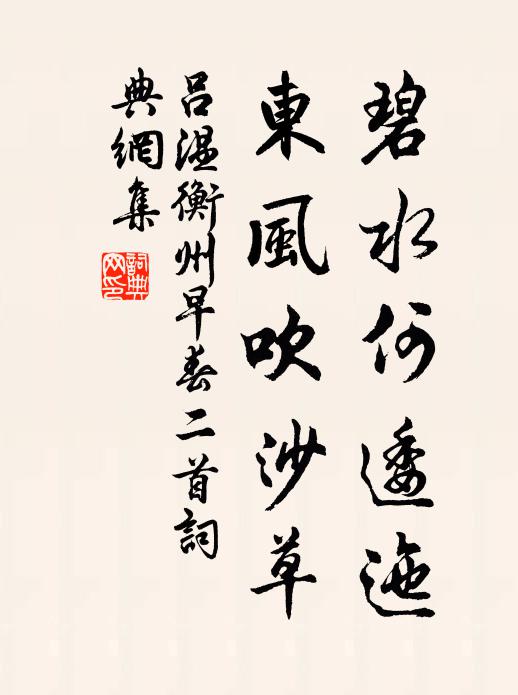 碧水何逶迤
東風吹沙草
呂溫衡州早春二首詞
典網集
詞典网印